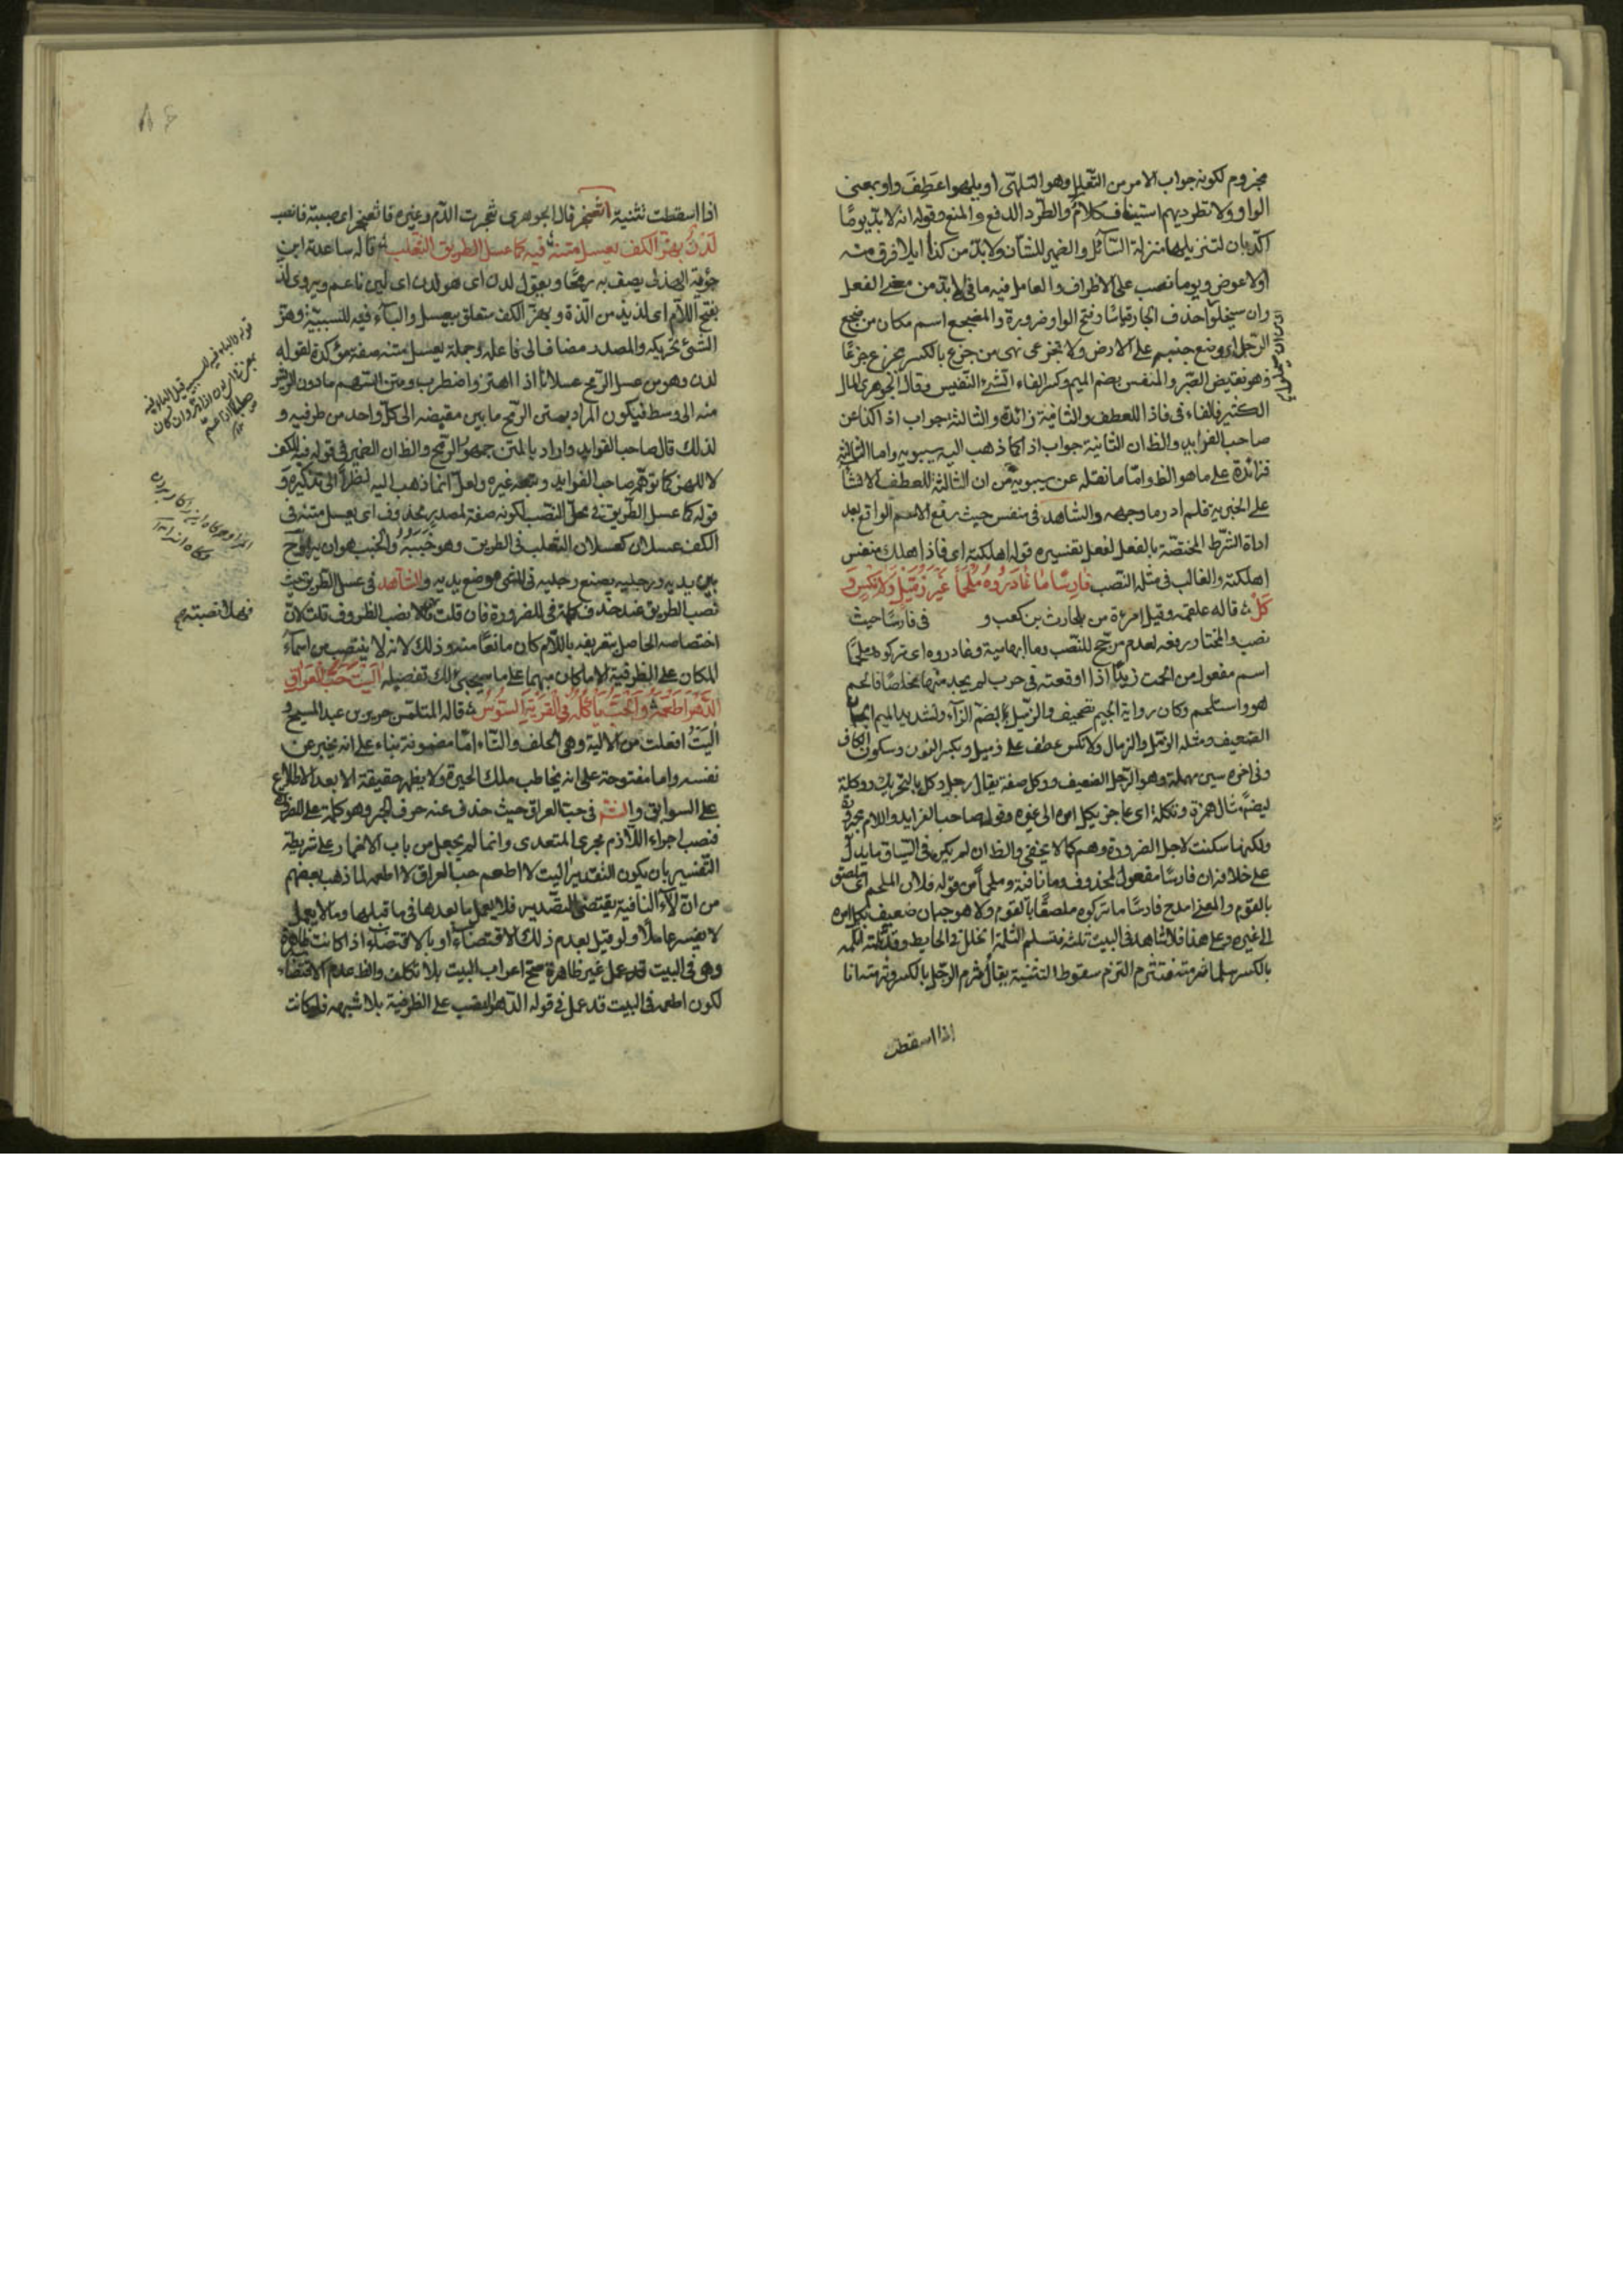 مجزوم لكونه جواب الامر من التعليل وهو التلهى او يلهوا عطف واو بمعنى
الواو ولا تطرديهم استيناف كلام والطرد الدفع والمنع وقوله انه لا بد يوما
اكد بان لتنزيلها منزلة السائل والضمير للشان ولا بد من كذا اى لا فراق منه
او لا عوض ويوما نصب على الاظراف والعامل فيه ما فى لا بد من معنى الفعل
وان سيخلوا حذف الجار قياسا وفتح الواو ضرورة والمضجع اسم مكان من ضجع
الرجل اى وضع جنبه على الارض ولا تجزعى نهى من جزع بالكسر يجزع جزعا
وهو نقيض الصبر والمنفس بضم الميم وكسر الفاء الشىء النفيس وقال الجوهرى المال
الكثير فالفاء فى فاذا للعطف والثانية زائدة والثالثة جواب اذا كذا عن
صاحب الفرايد والظ ان الثانية جواب اذا كما ذهب اليه سيبويه واما الثالثة
فزائدة على ما هو الظ واما ما نقله عن سيبويه من ان الثالثة للعطف
على الخبرية فلم ادر ما وجهه والشاهد فى منفس حيث رفع الاسم الواقع بعد
اداة الشرط المختصة بالفعل لفعل تفسيره قوله اهلكته اى فاذا هلك منفس
اهلكته والغالب فى مثله النصب فارسا ما غادروه ملحما غير زميل ولا نكس و
كل قاله علقمه وقيل امرءة من بلحارث بن كعب و فى فارسا حيث
نصب والمختار رفعه لعدم مرجح للنصب وما ابهامية وغادروه اى تركوه ملحما
اسم مفعول من الحمت زيدا اذا اوقعته فى حرب لم يجد منها مخلصا فالحم
هو واستلحم وكان رواية الجيم تصحيف والزميل بضم الزاء وتشديد الميم الجبان
الضعيف ومثله الزمل والزمال ولا نكس عطف على زميل وبكسر النون وسكون الكاف
وفى اخره سين مهملة وهو الرجل الضعيف ووكل صفة يقال رجل وكل بالتحريك ووكلة
ايضا مثال همزة وتكلة اى عاجز يكل امره الى غيره وقول صاحب الفرايد واللام مجرورة
ولكنها سكنت لاجل الضرورة وهم كما لا يخفى والظ ان لم يكن فى السياق ما يدل
على خلافه ان فارسا مفعول لمحذوف وما نافية وملحما من قوله فلان الملحم اى ملصق
بالقوم والمعنى امدح فارسا ما تركوه ملصقا بالقوم ولا هو جبان ضعيف يكل امره
الى غيره وعلى هذا فلا شاهد فى البيت ثلثه فتسلم الثلمة الخلل فى الحايط وقد ثلمته اثلمه
بالكسر ثلما ثرمته فتثرم الثرم سقوط الثنية يقال ثرم الرجل بالكسر وثرمته انا
اذا اسقطت
اذا اسقطت ثنيته اثعنجر قال الجوهرى ثجرت الدم وغيره فاثعنجر اى صببته فانصب
لدن بهز الكف يعسل متنه فيه كما عسل الطريق الثعلب قاله ساعدة ابن
جؤية الهذلى يصف به رمحا ويقول لدن اى هو لدن اى لين ناعم ويروى لذ
بفتح اللام اى لذيذ من اللذة وبهز الكف متعلق بيعسل والباء فيه للسببية وهز
الشىء تحريكه والمصدر مضاف الى فاعله وجملة يعسل متنه صفة مؤكدة لقوله
لدن وهو من عسل الرمح عسلانا اذا اهتز واضطرب ومتن السهم ما دون الريش
منه الى وسط فيكون المراد بمتن الرمح ما بين مقبضه الى كل واحد من طرفيه و
لذلك قال صاحب الفرايد واراد بالمتن جمهور الرمح والظ ان الضمير فى قوله فيه للكف
لا للهز كما توهمه صاحب الفرايد وتبعه غيره ولعل انما ذهب اليه لنظر الى تذكيره و
قوله كما عسل الطريق فى محل النصب لكونه صفة لمصدر محذوف اى يعسل متنه فى
الكف عسلانا كعسلان الثعلب فى الطريق وهو خببه والخبب هو ان يراوح
بين يديه ورجليه يضع رجليه فى المشى موضع يديه والشاهد فى عسل الطريق حيث
نصب الطريق عند حذف كلمة فى للضرورة فان قلت هلا نصب الظروف قلت لان
اختصاصه الحاصل بتعريفه باللام كان مانعا منه وذلك لانه لا ينتصب من اسماء
المكان على الظرفية الا ما كان مبهما على ما سيجىء لك تفصيله اليت حب العراق
الدهر اطعمه والحب ياكله فى القرية السوس قاله المتلمس جرير بن عبد المسيح و
اليت افعلت من الالية وهى الحلف والتاء اما مضمونة بناء على انه يخبر عن
نفسه واما مفتوحة على انه يخاطب ملك الحيرة ولا يظهر حقيقة الا بعد الاطلاع
على السوابق والش فى حب العراق حيث حذف عنه حرف الجر وهو كلمة على الظ
فنصب اجراء اللازم مجرى المتعدى وانما لم يجعل من باب الاضمار على شريطة
التفسير بان يكون التقدير اليت لا اطعم حب العراق لا اطعمه لما ذهب بعضهم
من ان لا النافية يقتضى التصدير فلا يعمل ما بعدها فى ما قبلها وما لا يعمل
لا يفسر عاملا ولو قيل بعدم ذلك الاقتضاء او بالاقتضاء اذا كانت ظاهرة
وهى فى البيت قد عمل غير ظاهرة صح اعراب البيت بلا تكلف والظ عدم الاقتضاء
لكون اطعمه فى البيت قد عمل فى قوله الدهر النصب على الظرفية بلا شبهه فلو كانت